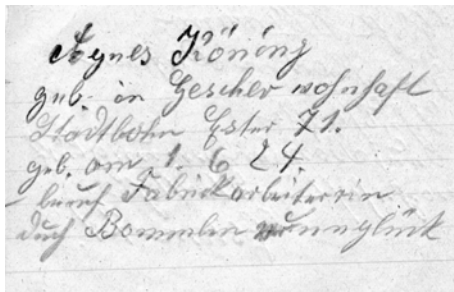 Agnes Köning
geb. in Gescher wohnhaft
Stadtlohn Ester 71.
geb. am 1. 6 24.
beruf Fabrikarbeiterrin
duch Bommen verunglück